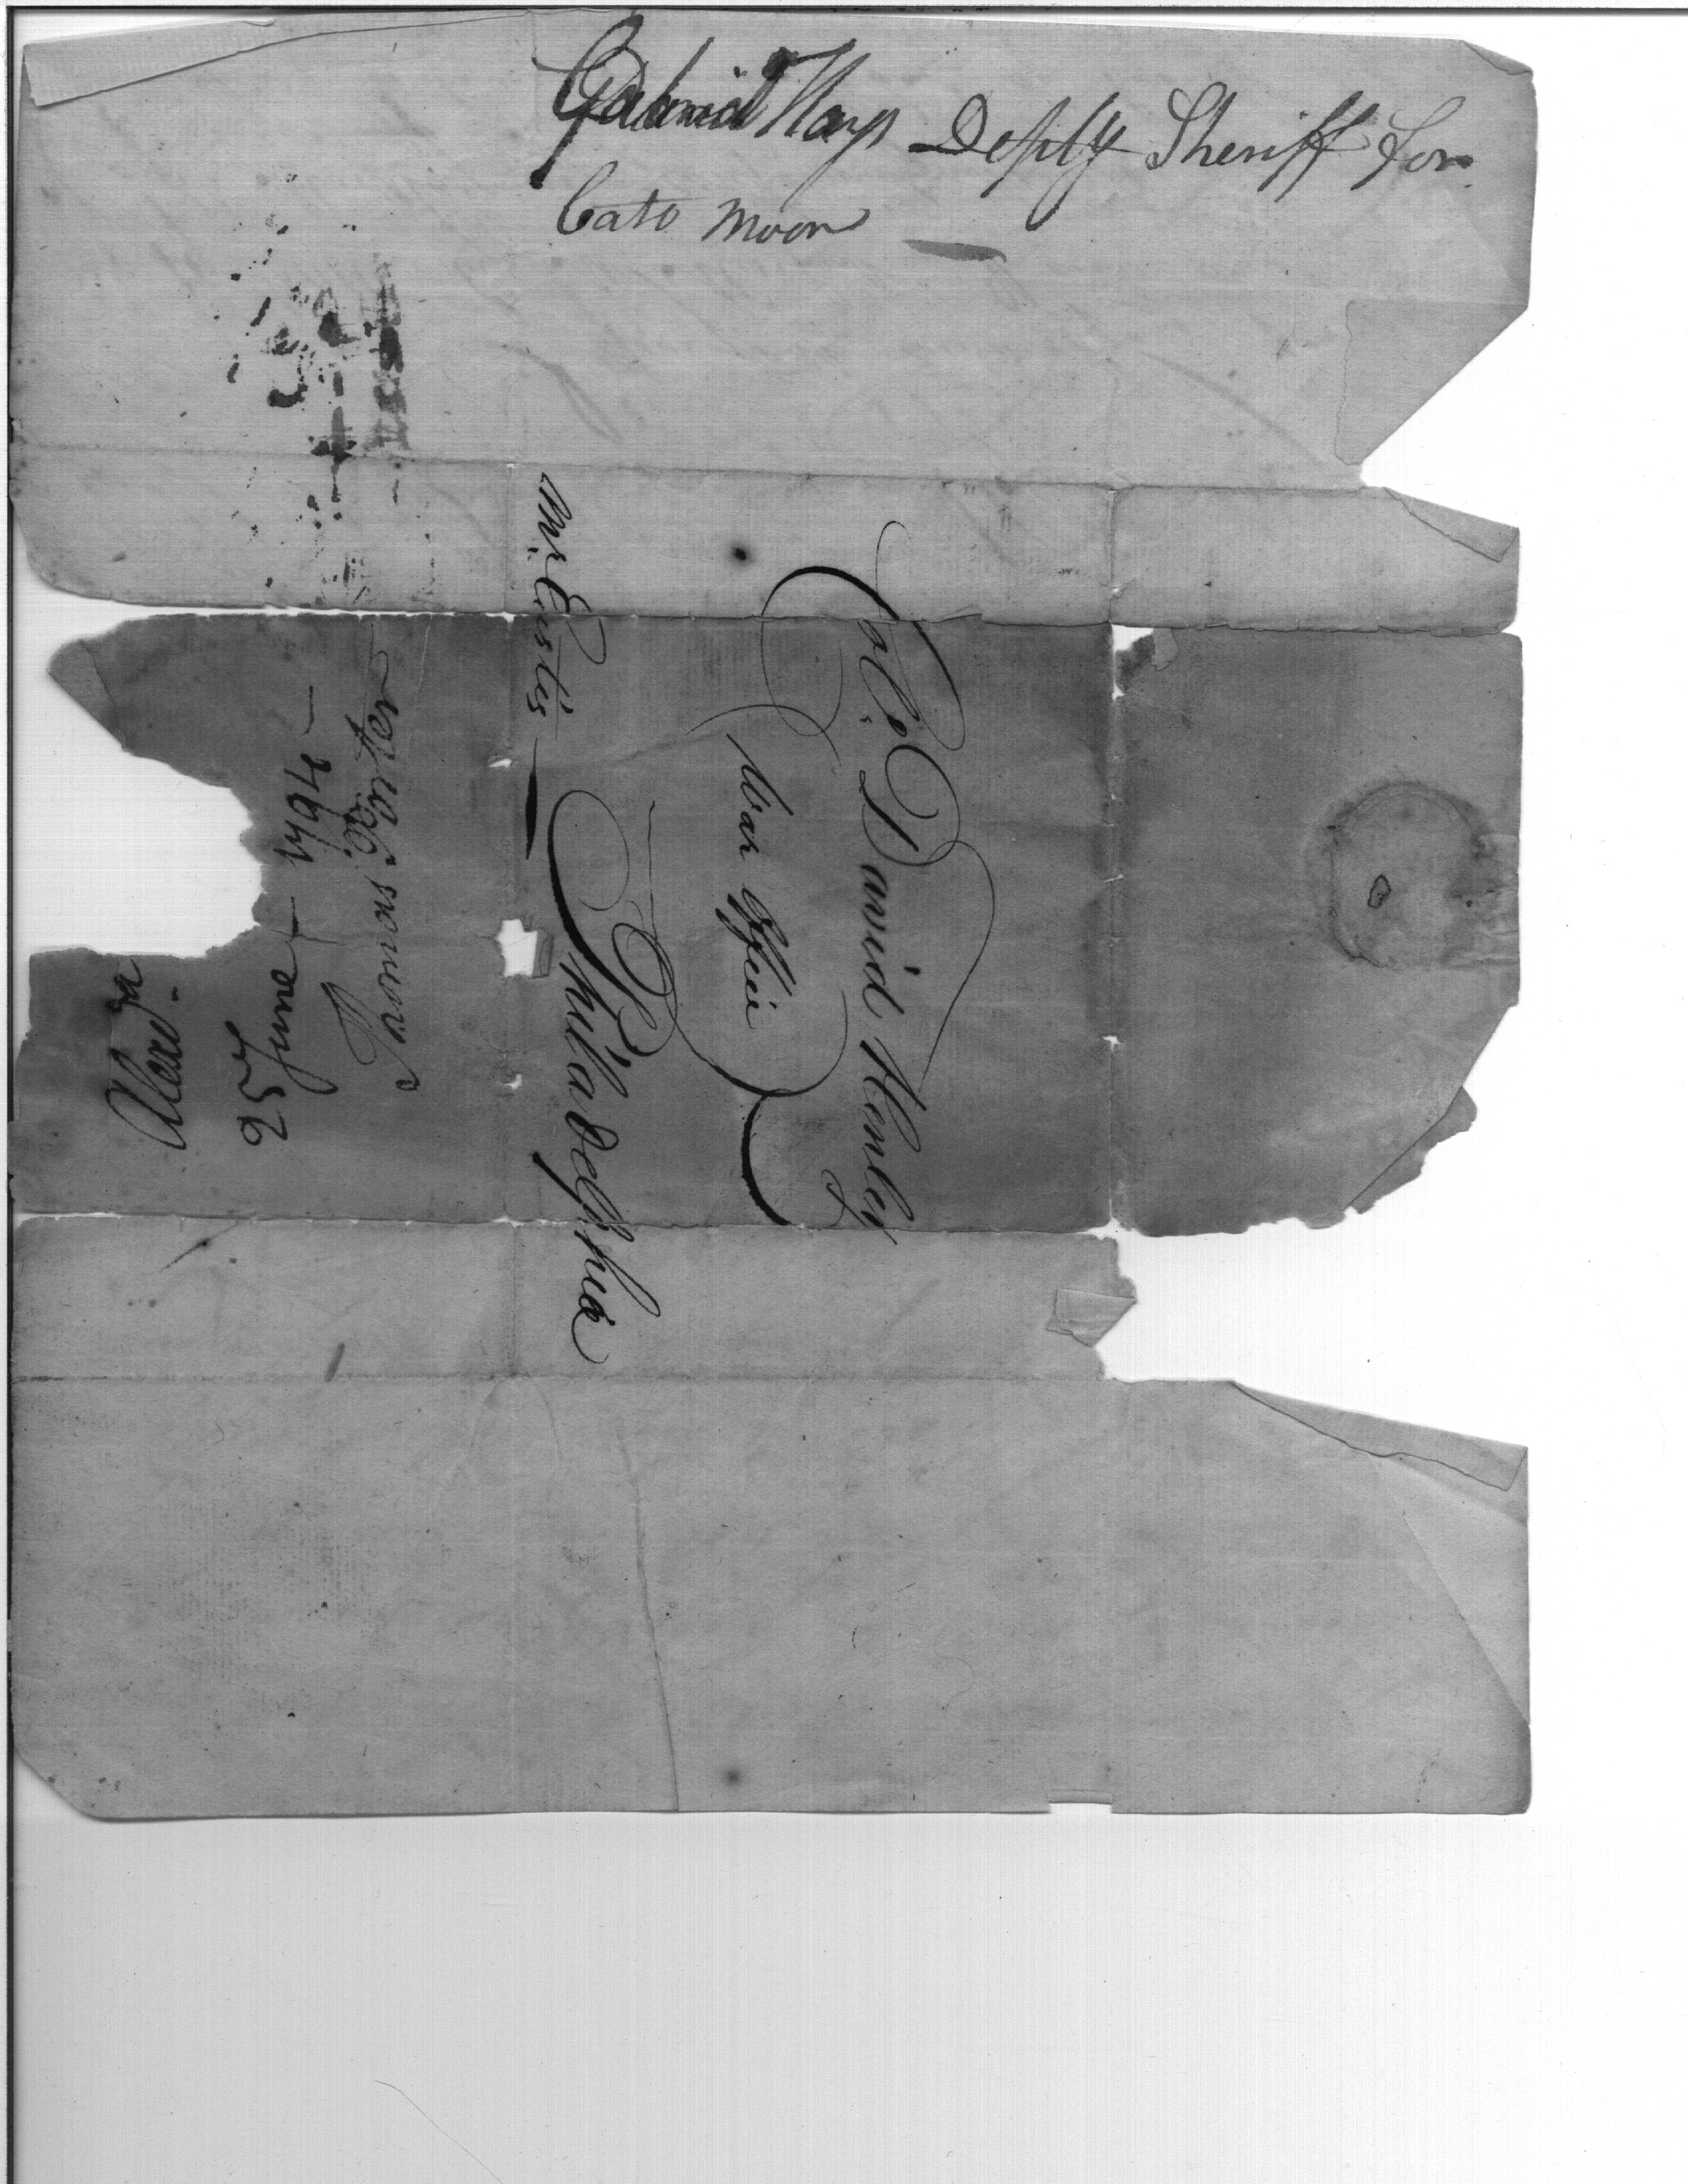 Gabriel Hays Depity Sheriff for
Cato Moon
Colo. David Henley
War Office
Philadelphia
Mr. Eustis
Alexa.
25 June 1794
Thomas Porter